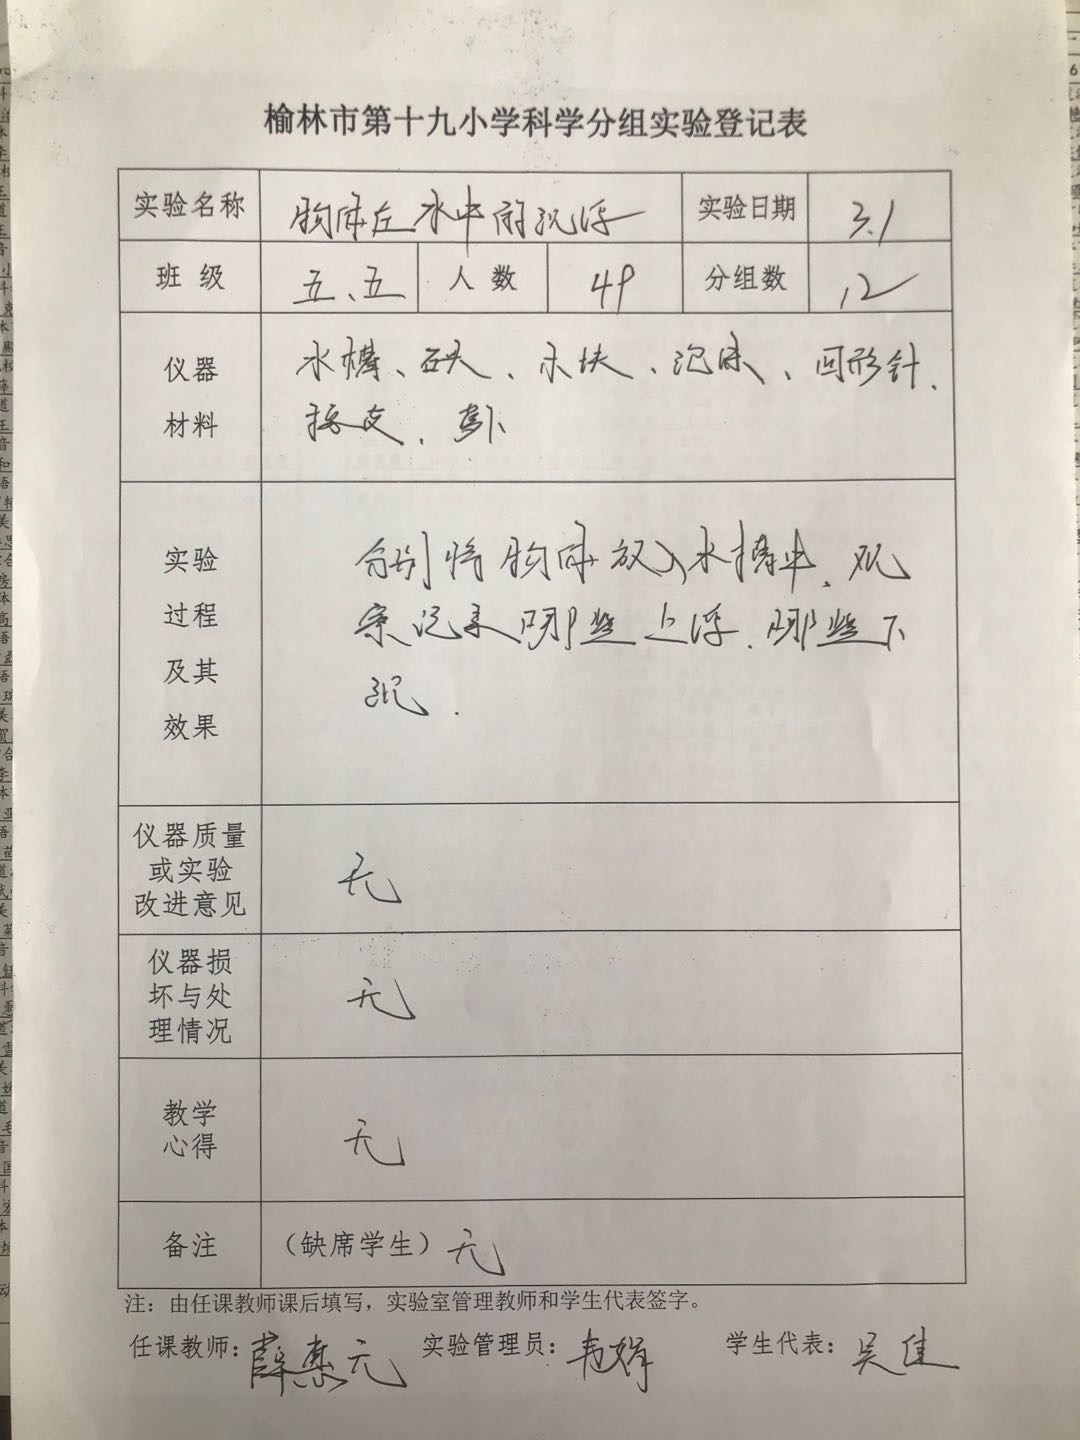 榆林市第十九小学科学分组实验登记表
实验名称 物体在水中的沉浮 实验日期 3.1
班 级 五、五 人 数 49 分组数 12
仪器 水槽、石头、木块、泡沫、回形针、
材料 橡皮、萝卜
实验 分别将物体放入水槽中、观
过程 察记录哪些上浮、哪些下
及其 沉.
效果
仪器质量
或实验 无
改进意见
仪器损
坏与处 无
理情况
教学
心得 无
备注 （缺席学生）无
注：由任课教师课后填写，实验室管理教师和学生代表签字。
任课教师：薛惠元 实验管理员：韦娟 学生代表：吴佳